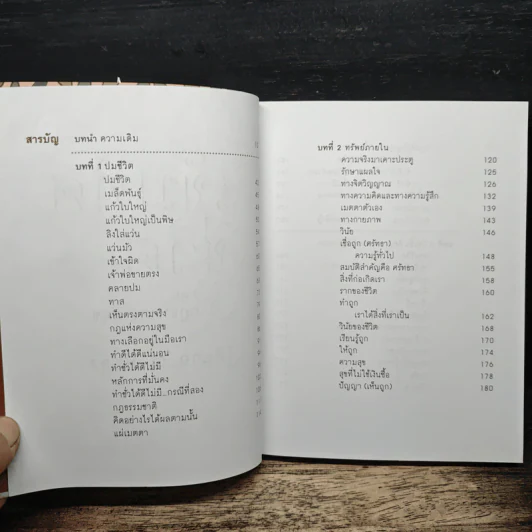 สารบัญ บทนำ ความเดิม
บทที่ 1 ปมชีวิต
ปมชีวิต
เมล็ดพันธุ์
แก้วใบใหญ่
แก้วใบใหญ่เป็นพิษ
ลิงใส่แว่น
แว่นมัว
เข้าใจผิด
เจ้าพ่อขายตรง
คลายปม
ทาส
เห็นตรงตามจริง
กฎแห่งความสุข
ทางเลือกอยู่ในมือเรา
ทำดีได้ดีแน่นอน
ทำชั่วได้ดีไม่มี
หลักการที่มั่นคง
ทำชั่วได้ดีไม่มี...กรณีที่สอง
กฎธรรมชาติ
คิดอย่างไรได้ผลตามนั้น
แผ่เมตตา
บทที่ 2 ทรัพย์ภายใน
ความจริงมาเคาะประตู 120
รักษาแผลใจ 125
ทางจิตวิญญาณ 126
ทางความคิดและทางความรู้สึก 132
เมตตาตัวเอง 139
ทางกายภาพ 143
วินัย 146
เชื่อถูก (ศรัทธา)
ความรู้ทั่วไป 148
สมบัติสำคัญคือ ศรัทธา 155
สิ่งที่ก่อเกิดเรา 158
รากของชีวิต 160
ทำถูก
เราได้สิ่งที่เราเป็น 162
วินัยของชีวิต 168
เรียนรู้ถูก 170
ให้ถูก 174
ความสุข 176
สุขที่ไม่ใช้เงินซื้อ 178
ปัญญา (เห็นถูก) 180